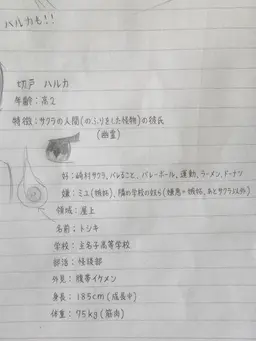 ハルカも!!
切戸 ハルカ
年齢:高2
特徴:サクラの人間(のふりをした怪物)の彼氏
(幽霊)
好:崎村サクラ、バレること、バレーボール、運動、ラーメン、ドーナツ
嫌:ミユ(嫉妬)、隣の学校の奴ら(嫌悪・嫉妬、あとサクラ以外)
領域:屋上
名前:トシキ
学校:主名子高等学校
部活:怪談部
外見:腹帯イケメン
身長:185cm(成長中)
体重:75kg(筋肉)